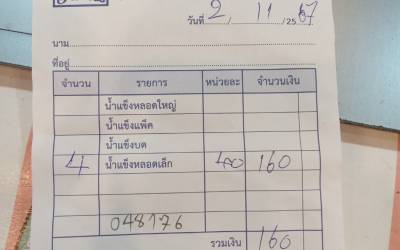 วันที่ 2 / 11 / 2567
นาม
ที่อยู่
จำนวน รายการ หน่วยละ จำนวนเงิน
น้ำแข็งหลอดใหญ่
น้ำแข็งแพ็ค
น้ำแข็งบด
4 น้ำแข็งหลอดเล็ก 40 160
048176
รวมเงิน 160